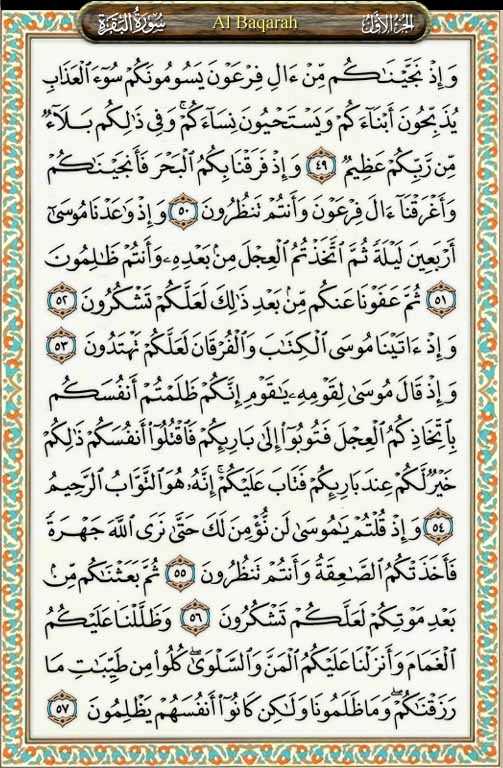 سُورَةُ البَقَرَةِ Al Baqarah الجُزءُ الأَوَّلُ
وَإِذْ نَجَّيْنَـٰكُم مِّنْ ءَالِ فِرْعَوْنَ يَسُومُونَكُمْ سُوٓءَ ٱلْعَذَابِ
يُذَبِّحُونَ أَبْنَآءَكُمْ وَيَسْتَحْيُونَ نِسَآءَكُمْ ۚ وَفِى ذَٰلِكُم بَلَآءٌ
مِّن رَّبِّكُمْ عَظِيمٌ ٤٩ وَإِذْ فَرَقْنَا بِكُمُ ٱلْبَحْرَ فَأَنجَيْنَـٰكُمْ
وَأَغْرَقْنَآ ءَالَ فِرْعَوْنَ وَأَنتُمْ تَنظُرُونَ ٥٠ وَإِذْ وَٰعَدْنَا مُوسَىٰٓ
أَرْبَعِينَ لَيْلَةً ثُمَّ ٱتَّخَذْتُمُ ٱلْعِجْلَ مِنۢ بَعْدِهِۦ وَأَنتُمْ ظَـٰلِمُونَ
٥١ ثُمَّ عَفَوْنَا عَنكُم مِّنۢ بَعْدِ ذَٰلِكَ لَعَلَّكُمْ تَشْكُرُونَ ٥٢
وَإِذْ ءَاتَيْنَا مُوسَى ٱلْكِتَـٰبَ وَٱلْفُرْقَانَ لَعَلَّكُمْ تَهْتَدُونَ ٥٣
وَإِذْ قَالَ مُوسَىٰ لِقَوْمِهِۦ يَـٰقَوْمِ إِنَّكُمْ ظَلَمْتُمْ أَنفُسَكُم
بِٱتِّخَاذِكُمُ ٱلْعِجْلَ فَتُوبُوٓا۟ إِلَىٰ بَارِئِكُمْ فَٱقْتُلُوٓا۟ أَنفُسَكُمْ ذَٰلِكُمْ
خَيْرٌ لَّكُمْ عِندَ بَارِئِكُمْ فَتَابَ عَلَيْكُمْ ۚ إِنَّهُۥ هُوَ ٱلتَّوَّابُ ٱلرَّحِيمُ
٥٤ وَإِذْ قُلْتُمْ يَـٰمُوسَىٰ لَن نُّؤْمِنَ لَكَ حَتَّىٰ نَرَى ٱللَّهَ جَهْرَةً
فَأَخَذَتْكُمُ ٱلصَّـٰعِقَةُ وَأَنتُمْ تَنظُرُونَ ٥٥ ثُمَّ بَعَثْنَـٰكُم مِّنۢ
بَعْدِ مَوْتِكُمْ لَعَلَّكُمْ تَشْكُرُونَ ٥٦ وَظَلَّلْنَا عَلَيْكُمُ
ٱلْغَمَامَ وَأَنزَلْنَا عَلَيْكُمُ ٱلْمَنَّ وَٱلسَّلْوَىٰ ۖ كُلُوا۟ مِن طَيِّبَـٰتِ مَا
رَزَقْنَـٰكُمْ ۖ وَمَا ظَلَمُونَا وَلَـٰكِن كَانُوٓا۟ أَنفُسَهُمْ يَظْلِمُونَ ٥٧